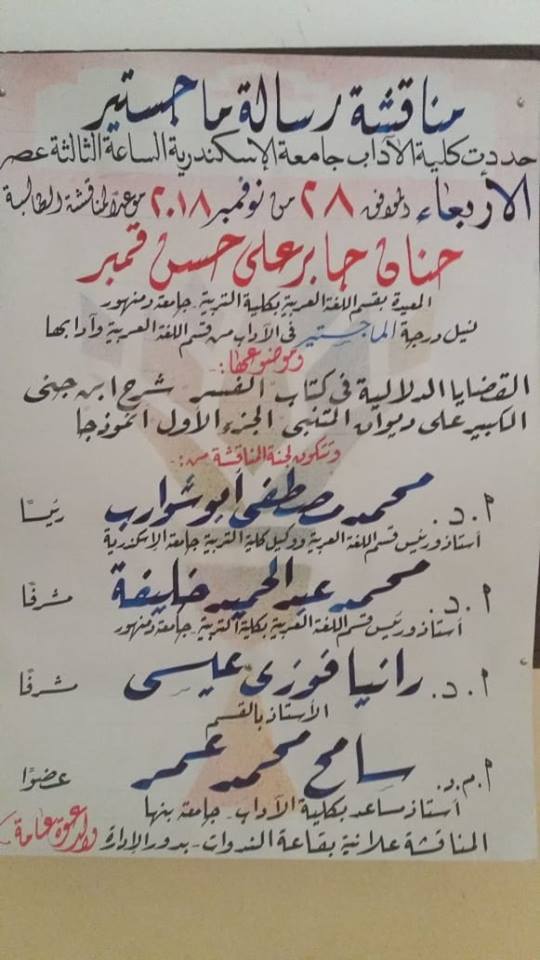 مناقشة رسالة ماجستير
حددت كلية الآداب جامعة الإسكندرية الساعة الثالثة عصر
الأربعاء الموافق ٢٨ من نوفمبر ٢٠١٨ موعدًا لمناقشة الطالبة
حنان جابر على حسن قمبر
المعيدة بقسم اللغة العربية بكلية التربية. جامعة دمنهور
لنيل درجة الماجستير فى الآداب من قسم اللغة العربية وآدابها
وموضوعها:-
القضايا الدلالية فى كتاب الفسر شرح ابن جنى
الكبير على ديوان المتنبى الجزء الأول أنموذجا
وتتكون لجنة المناقشة من:-
أ.د. محمد مصطفى أبو شوارب رئيسًا
أستاذ ورئيس قسم اللغة العربية ووكيل كلية التربية جامعة الإسكندرية
أ.د. محمد عبد الحميد خليفة مشرفًا
أستاذ ورئيس قسم اللغة العربية بكلية التربية. جامعة دمنهور
أ.د. رانيا فوزى عيسى مشرفًا
الأستاذ بالقسم
أ.م.د. سامح محمد عمر عضوًا
أستاذ مساعد بكلية الآداب - جامعة بنها
المناقشة علانية بقاعة الندوات - بدور الإدارة والدعوة عامة